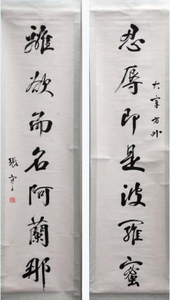 忍辱即是波羅蜜
大家方外
離欲而名阿蘭那